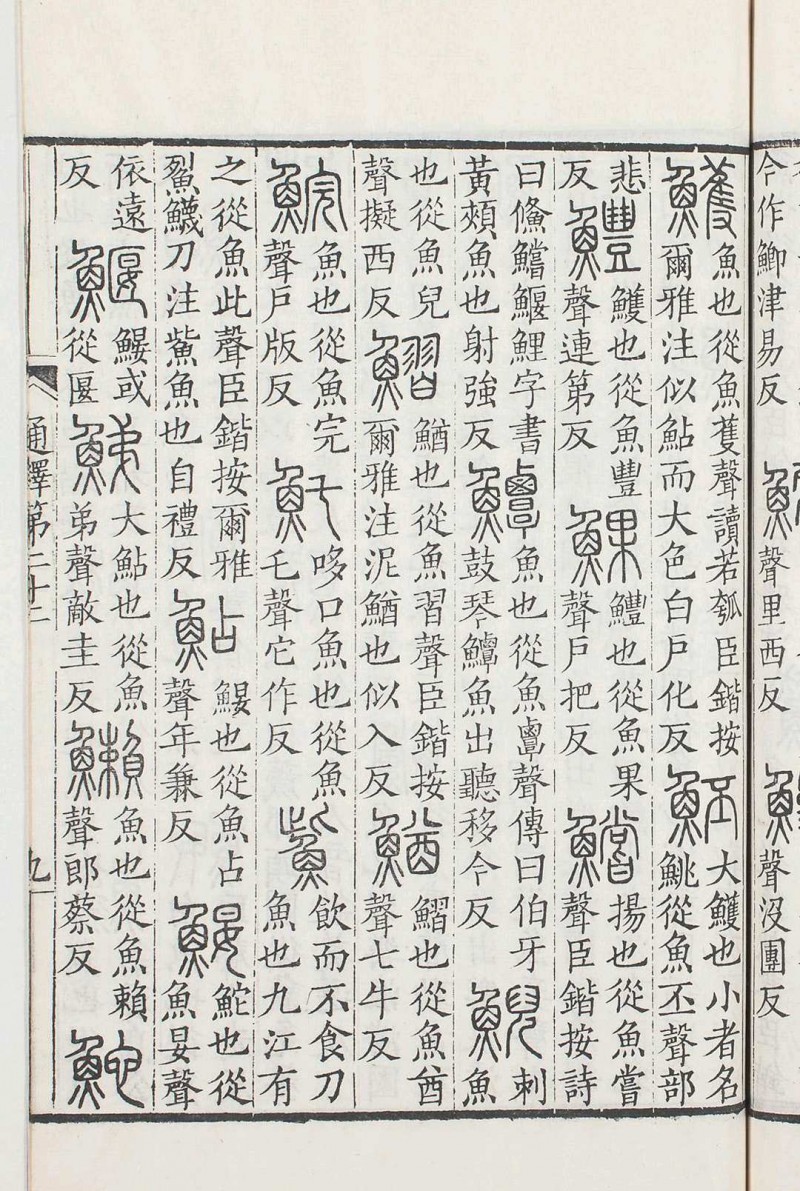 今作鯽津易反
聲里西反
聲沒團反
鱯
魚也從魚蒦聲讀若瓠臣鍇按
爾雅注似鮎而大色白戶化反
魾
大鱯也小者名
鮡從魚丕聲部
悲
反
鱧
鱯也從魚豐
聲連第反
鰁
鱧也從魚果
聲戶把反
鱨
揚也從魚嘗
聲臣鍇按詩
曰鯈鱨鰋鯉字書
黃頰魚也射強反
鱏
魚也從魚覃聲傳曰伯牙
鼓琴鱏魚出聽移今反
鯢
刺
魚
也從魚兒
聲擬西反
鰼
鰌也從魚習聲臣鍇按
爾雅注泥鰌也似入反
鰌
鰼也從魚酋
聲七牛反
鯇
魚也從魚完
聲戶版反
魠
哆口魚也從魚
乇聲它作反
鮆
飲而不食刀
魚也九江有
之從魚此聲臣鍇按爾雅
鴷鱴刀注鮆魚也自禮反
鮎
䱀也從魚占
聲年兼反
䱀
鮀也從
魚妟聲
依遠
反
鰋
䱀或
從匽
鮷
大鮎也從魚
弟聲敵圭反
鱲
魚也從魚賴
聲郎蔡反
鮀
通釋第二十二
九